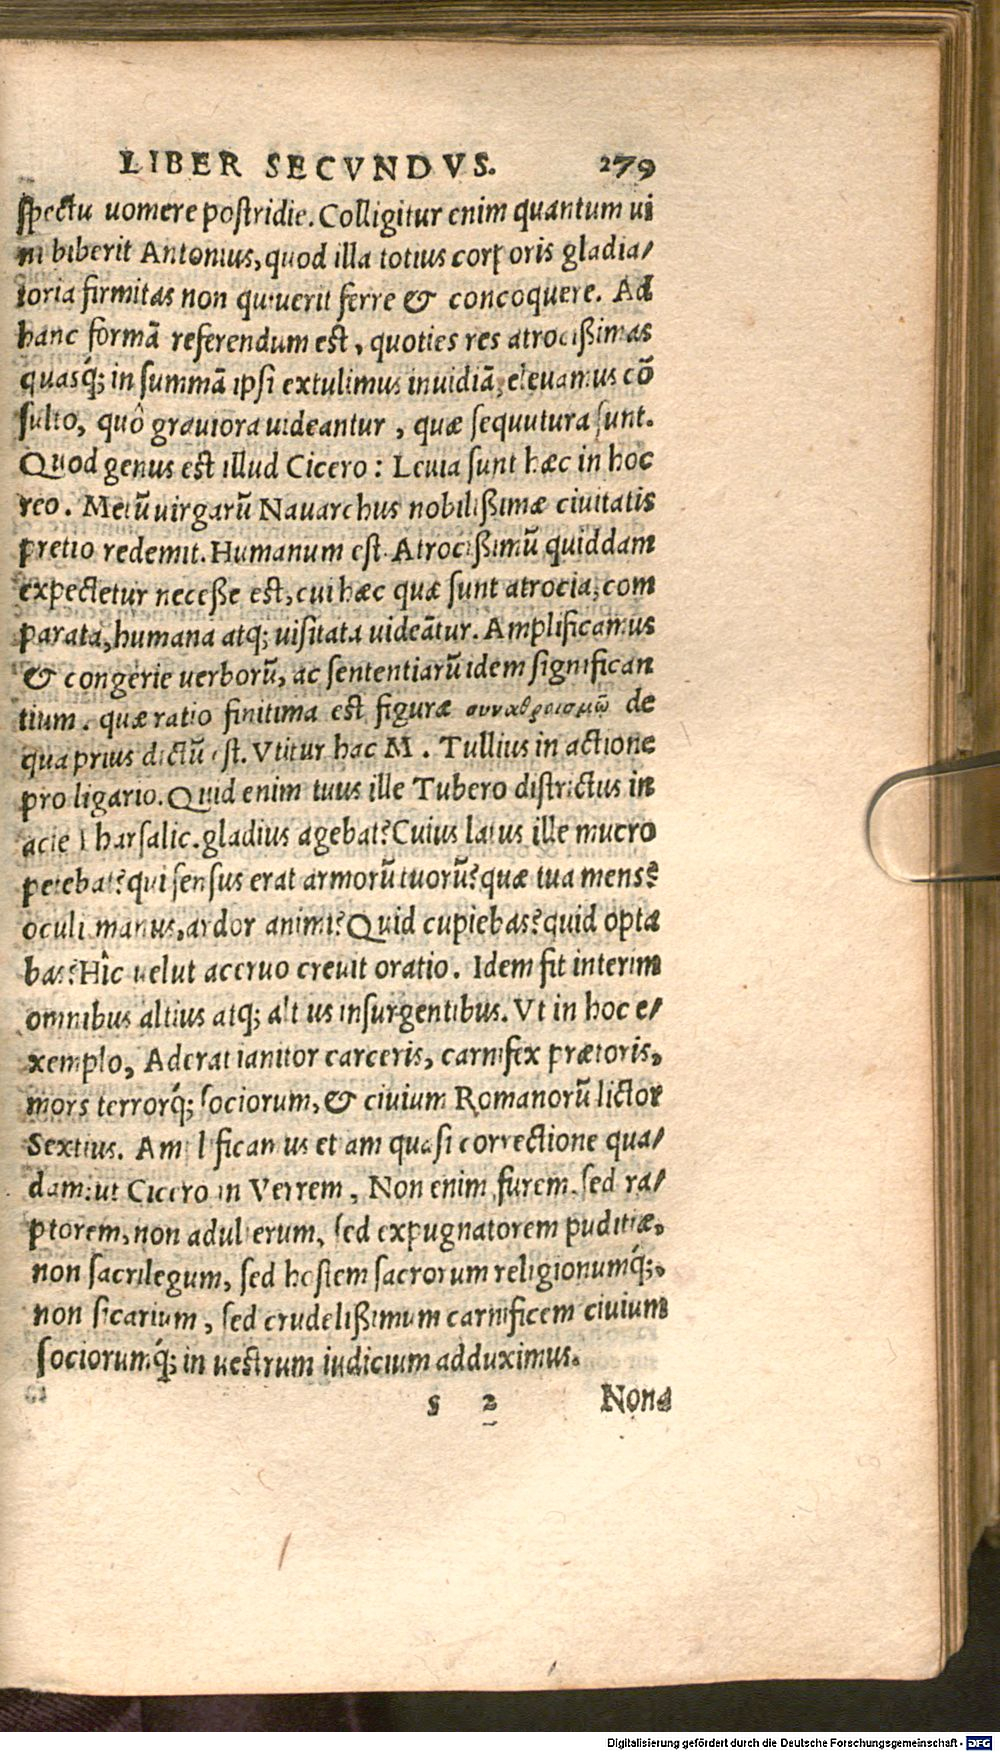 LIBER SECVNDVS. 279
ſpectu uomere poſtridie. Colligitur enim quantum ui
ni biberit Antonius, quod illa totius corporis gladia/
toria firmitas non quiuerit ferre & concoquere. Ad
hanc formā referendum eſt, quoties res atrociſſimas
quasq́; in ſummā ipſi extulimus inuidiā, eleuamus cō
ſulto, quô grauiora uideantur, quæ ſequutura ſunt.
Quod genus eſt illud Cicero: Leuia ſunt hæc in hoc
reo. Metū uirgarū Nauarchus nobiliſſimæ ciuitatis
pretio redemit. Humanum eſt. Atrociſſimū quiddam
expectetur neceſſe eſt, cui hæc quæ ſunt atrocia, com
parata, humana atq; uiſitata uideātur. Amplificamus
& congerie uerborū, ac ſententiarū idem ſignifican
tium. quæ ratio finitima eſt figuræ συναθροισμῶ de
qua prius dictū eſt. Vtitur hac M. Tullius in actione
pro ligario. Quid enim tuus ille Tubero diſtrictus in
acie Pharſalic. gladius agebat? Cuius latus ille mucro
petebat? qui ſenſus erat armorū tuorū? quæ tua mens?
oculi manus, ardor animi? Quid cupiebas? quid opta
bas? Hîc uelut aceruo creuit oratio. Idem fit interim
omnibus altius atq; altius inſurgentibus. Vt in hoc e/
xemplo, Aderat ianitor carceris, carnifex prætoris,
mors terrorq́; ſociorum, & ciuium Romanorū lictor
Sextius. Amplificamus etiam quaſi correctione qua/
dam: ut Cicero in Verrem, Non enim furem, ſed ra/
ptorem, non adulterum, ſed expugnatorem puditiæ,
non ſacrilegum, ſed hoſtem ſacrorum religionumq́;,
non ſicarium, ſed crudeliſſimum carnificem ciuium
ſociorumq́; in ueſtrum iudicium adduximus.
s 2 Nona
Digitalisierung gefördert durch die Deutsche Forschungsgemeinschaft - DFG